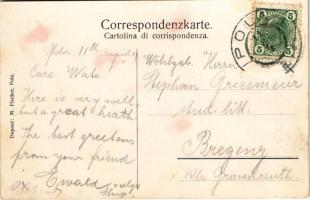 Correspondenzkarte.
Cartolina di corrispondenza.
POLA
5 5
Pola, 11th August
Care Wate!
Here is very well,
but a great heath.
The best greetons
from your friend
Ewald
Wohlgeb. Herrn
Stephan Griesmeier
stud. litt.
Bregenz
Villa Gravenreuth
Depost: M. Fischer, Pola.